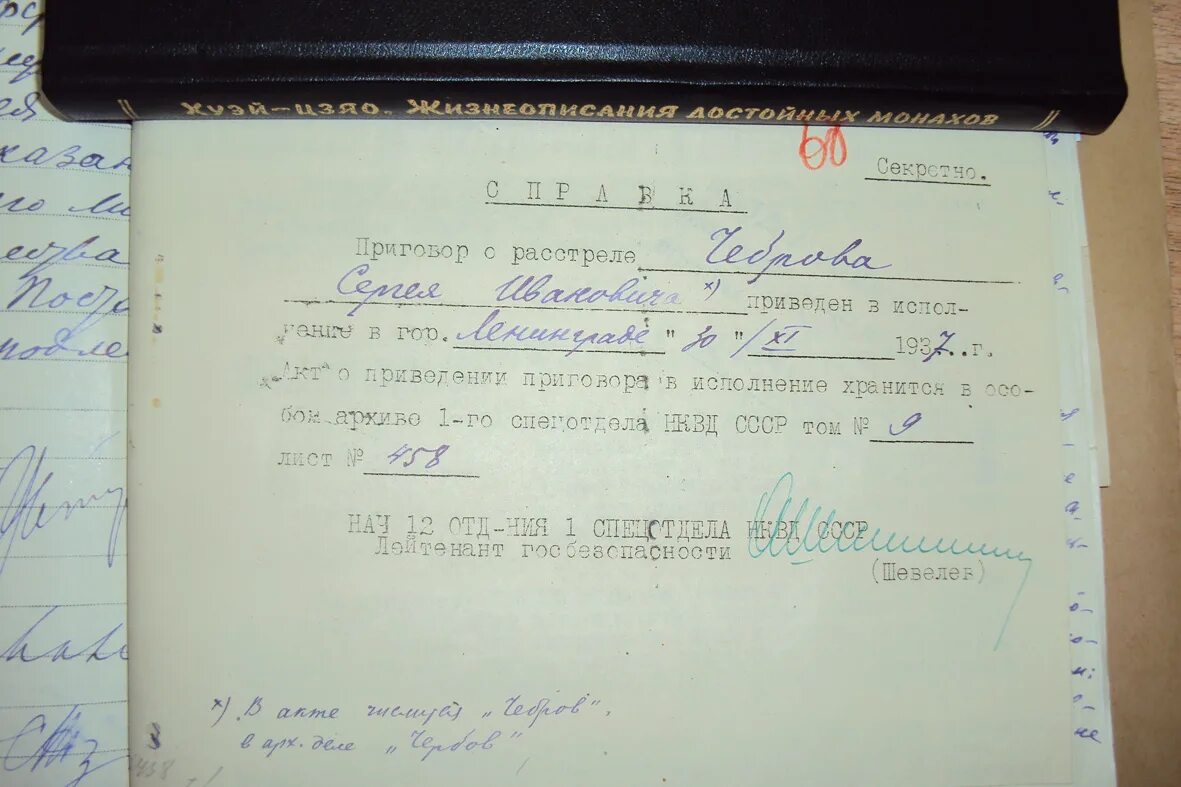 Хуэй-цзяо. Жизнеописания достойных монахов
60
Секретно.
СПРАВКА
Приговор о расстреле Чеброва
Сергея Ивановича х) приведен в испол-
нение в гор. Ленинграде "30"/XI 1937..г.
Акт о приведении приговора в исполнение хранится в осо-
бом архиве 1-го спецотдела НКВД СССР том № 9
лист № 458
НАЧ 12 ОТД-НИЯ 1 СПЕЦОТДЕЛА НКВД СССР
Лейтенант госбезопасности
(Шевелев)
х) В акте числится „Чебров",
в арх. деле „Чербов"